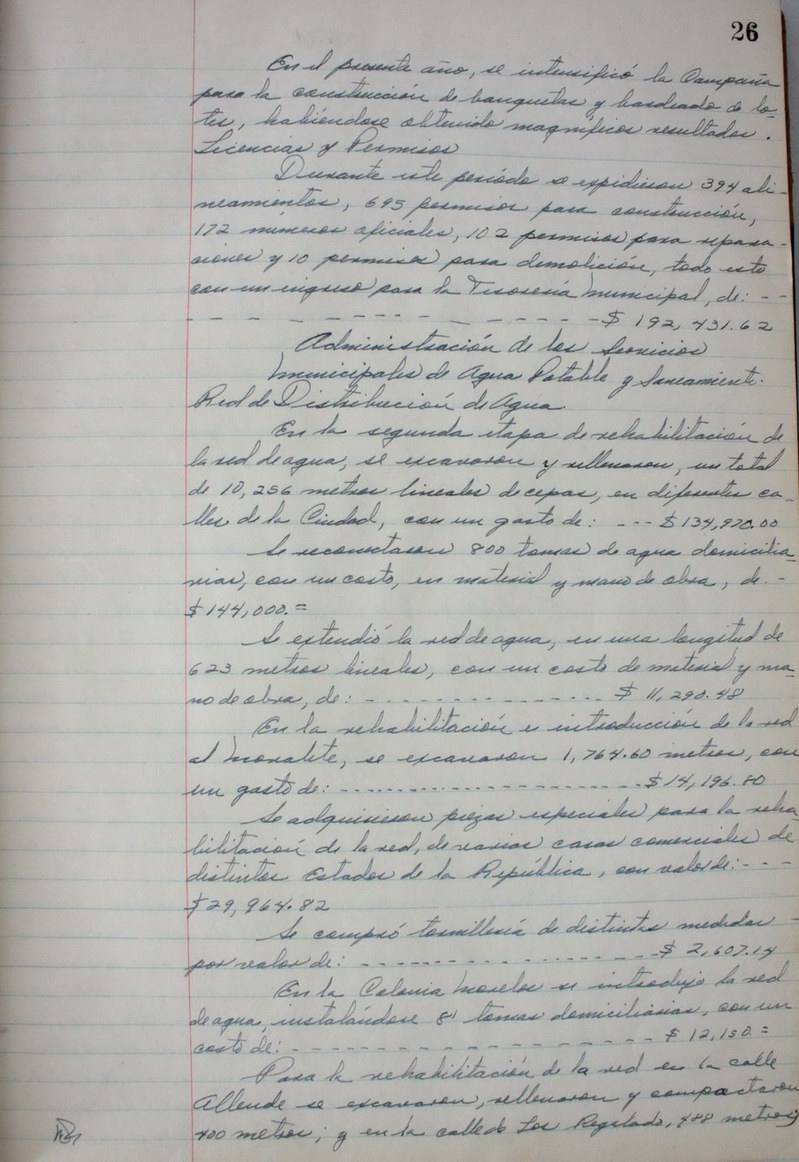 26
En el presente año, se intensificó la Campaña
para la construcción de banquetas y bardeado de lo-
tes, habiéndose obtenido magníficos resultados.
Licencias y Permisos
Durante este período se expidieron 394 ali-
neamientos, 695 permisos para construcción,
172 números oficiales, 102 permisos para repara-
ciones y 10 permisos para demolición, todo esto
con un ingreso para la Tesorería Municipal, de: - -
- - - - - - - - - - - - - $ 192,431.62
Administración de los Servicios
Municipales de Agua Potable y Saneamiento.
Red de Distribución de Agua.
En la segunda etapa de rehabilitación de
la red de agua, se excavaron y rellenaron, un total
de 10,256 metros lineales de cepas, en diferentes ca-
lles de la Ciudad, con un gasto de: - - - $134,970.00
Se reconectaron 800 tomas de agua domicilia-
rias, con un costo, en material y mano de obra, de. -
$144,000.=
Se extendió la red de agua, en una longitud de
623 metros lineales, con un costo de material y ma-
no de obra, de: - - - - - - - - - - - - - - $ 11,290.48
En la rehabilitación e introducción de la red
al Moralete, se excavaron 1,764.60 metros, con
un gasto de: - - - - - - - - - - - - - - - - - $14,196.80
Se adquirieron piezas especiales para la reha
bilitación de la red, de varias casas comerciales de
distintos Estados de la República, con valor de: - - -
$29,964.82
Se compró tornillería de distintas medidas -
por valor de: - - - - - - - - - - - - - - - - - $ 2,607.14
En la Colonia Morelos se introdujo la red
de agua, instalándose 81 tomas domiciliarias, con un
costo de: - - - - - - - - - - - - - - - - - - - $ 12,150.=
Para la rehabilitación de la red en la calle
Allende se excavaron, rellenaron y compactaron
400 metros; y en la calle de Los Regalado, 488 metros;